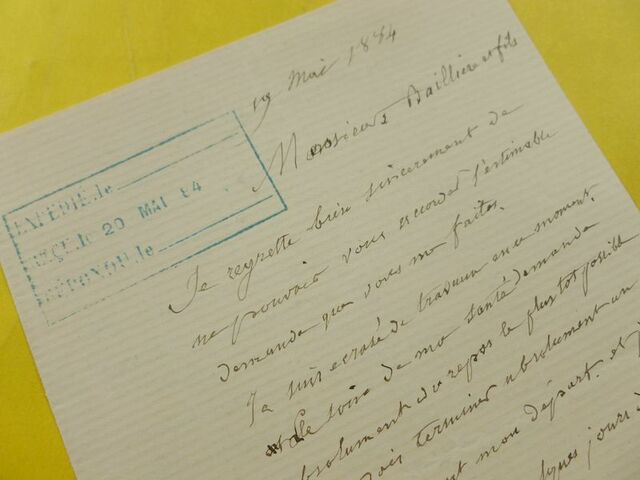 19 Mai 1884
Messieurs Baillière et fils
EXPÉDIÉ, le
REÇU, le 20 MAI 84
RÉPONDU, le
Je regrette bien sincèrement de
ne pouvoir vous accorder l'estimable
demande que vous me faites.
Je suis écrasé de travaux en ce moment.
et le soin de ma santé demande
absolument du repos le plus tôt possible
dois terminer absolument un
mon départ. et
jours